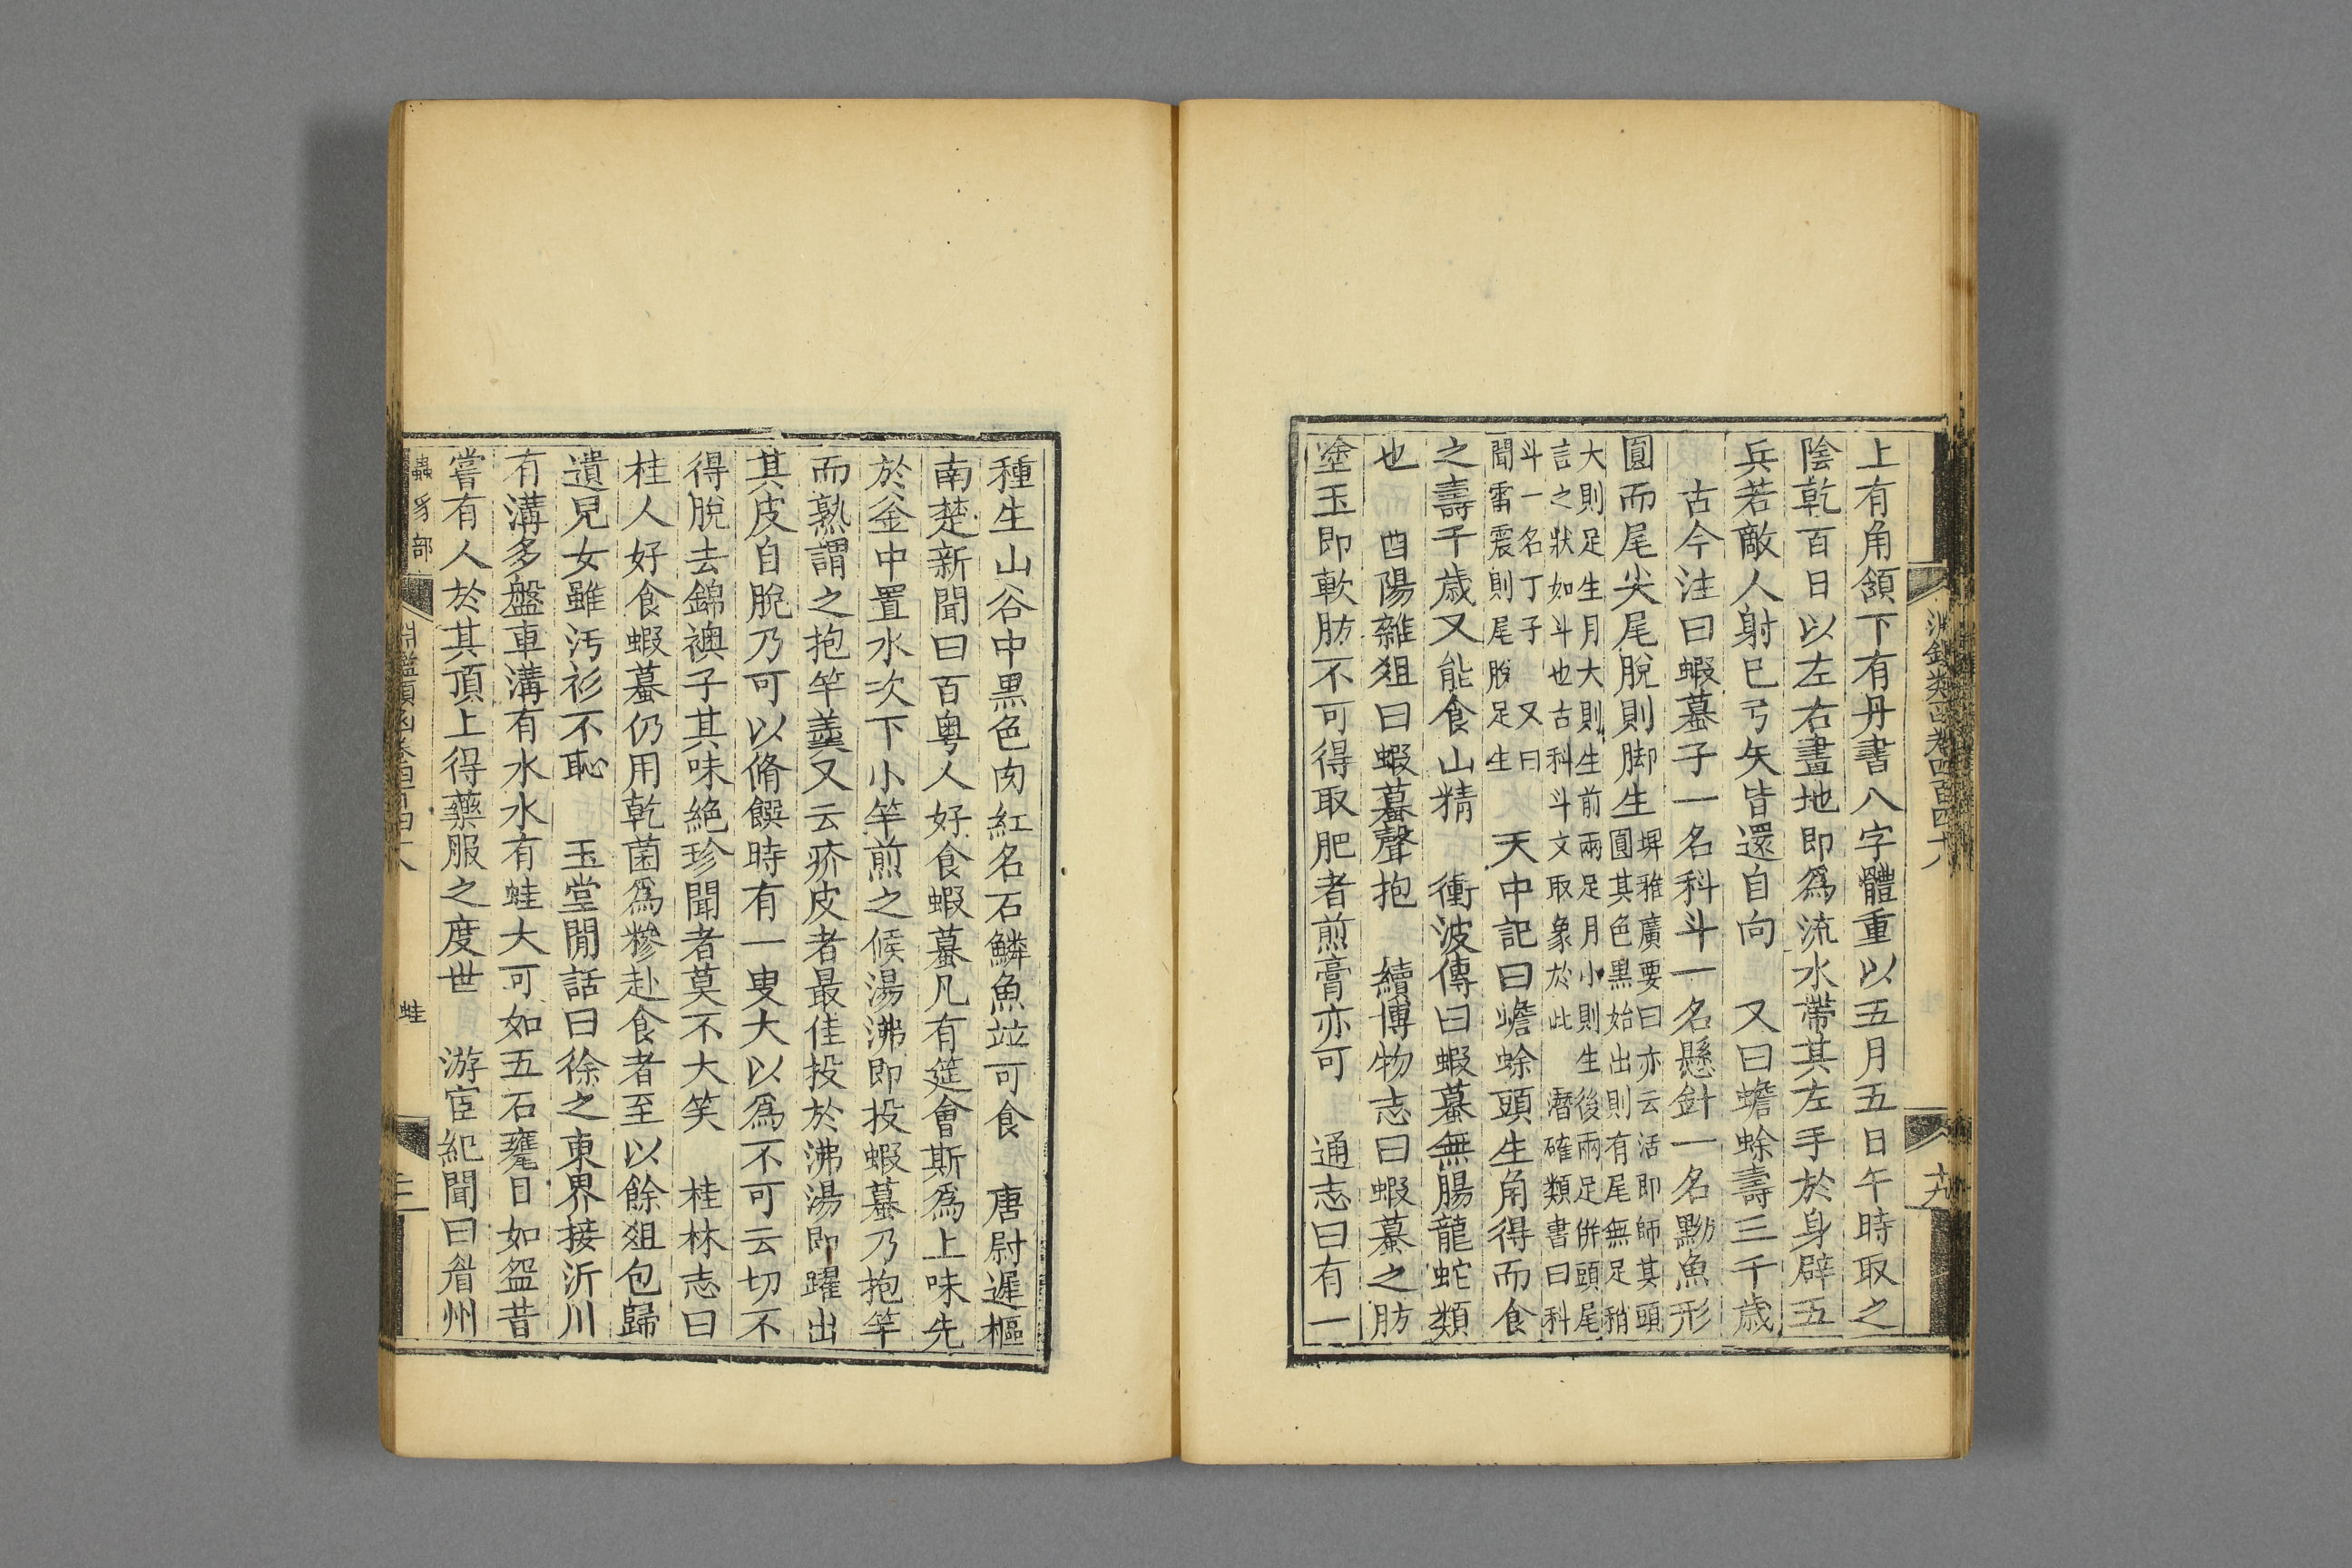 上有角頷下有丹書八字體重以五月五日午時取之
陰乾百日以左右畫地即爲流水帶其左手於身辟五
兵若敵人射已弓矢皆還自向　又曰蟾蜍壽三千歲
古今注曰蝦蟇子一名科斗一名懸針一名黝魚形
圓而尾尖尾脫則脚生
埤雅廣要曰亦云活即師其頭
圓其色黒始出則有尾無足稍
大則足生月大則生前兩足月小則生後兩足併頭尾
言之狀如斗也古科斗文取象於此　潛確類書曰科
斗一名丁子　又曰
聞雷震則尾脫足生
天中記曰蟾蜍頭生角得而食
之壽千歲又能食山精　衝波傳曰蝦蟇無腸龍蛇類
也　酉陽雜俎曰蝦蟇聲抱　續博物志曰蝦蟇之肪
塗玉即軟肪不可得取肥者煎膏亦可　通志曰有一
淵鑑類函卷四百四十八
十九
種生山谷中黒色肉紅名石鱗魚竝可食　唐尉遲樞
南楚新聞曰百粤人好食蝦蟇凡有筵會斯爲上味先
於釡中置水次下小竿煎之候湯沸即投蝦蟇乃抱竿
而熟謂之抱竿羹又云疥皮者最佳投於沸湯即躍出
其皮自脫乃可以脩饌時有一叟大以爲不可云切不
得脫去錦襖子其味絶珍聞者莫不大笑　桂林志曰
桂人好食蝦蟇仍用乾菌爲糝赴食者至以餘俎包歸
遺兒女雖汚衫不恥　玉堂閒話曰徐之東界接沂川
有溝多盤車溝有水水有蛙大可如五石甕目如盌昔
嘗有人於其頂上得藥服之度世　游宦紀聞曰㫺州
蟲豸部
淵鑑類函卷四百四十八
蛙
二